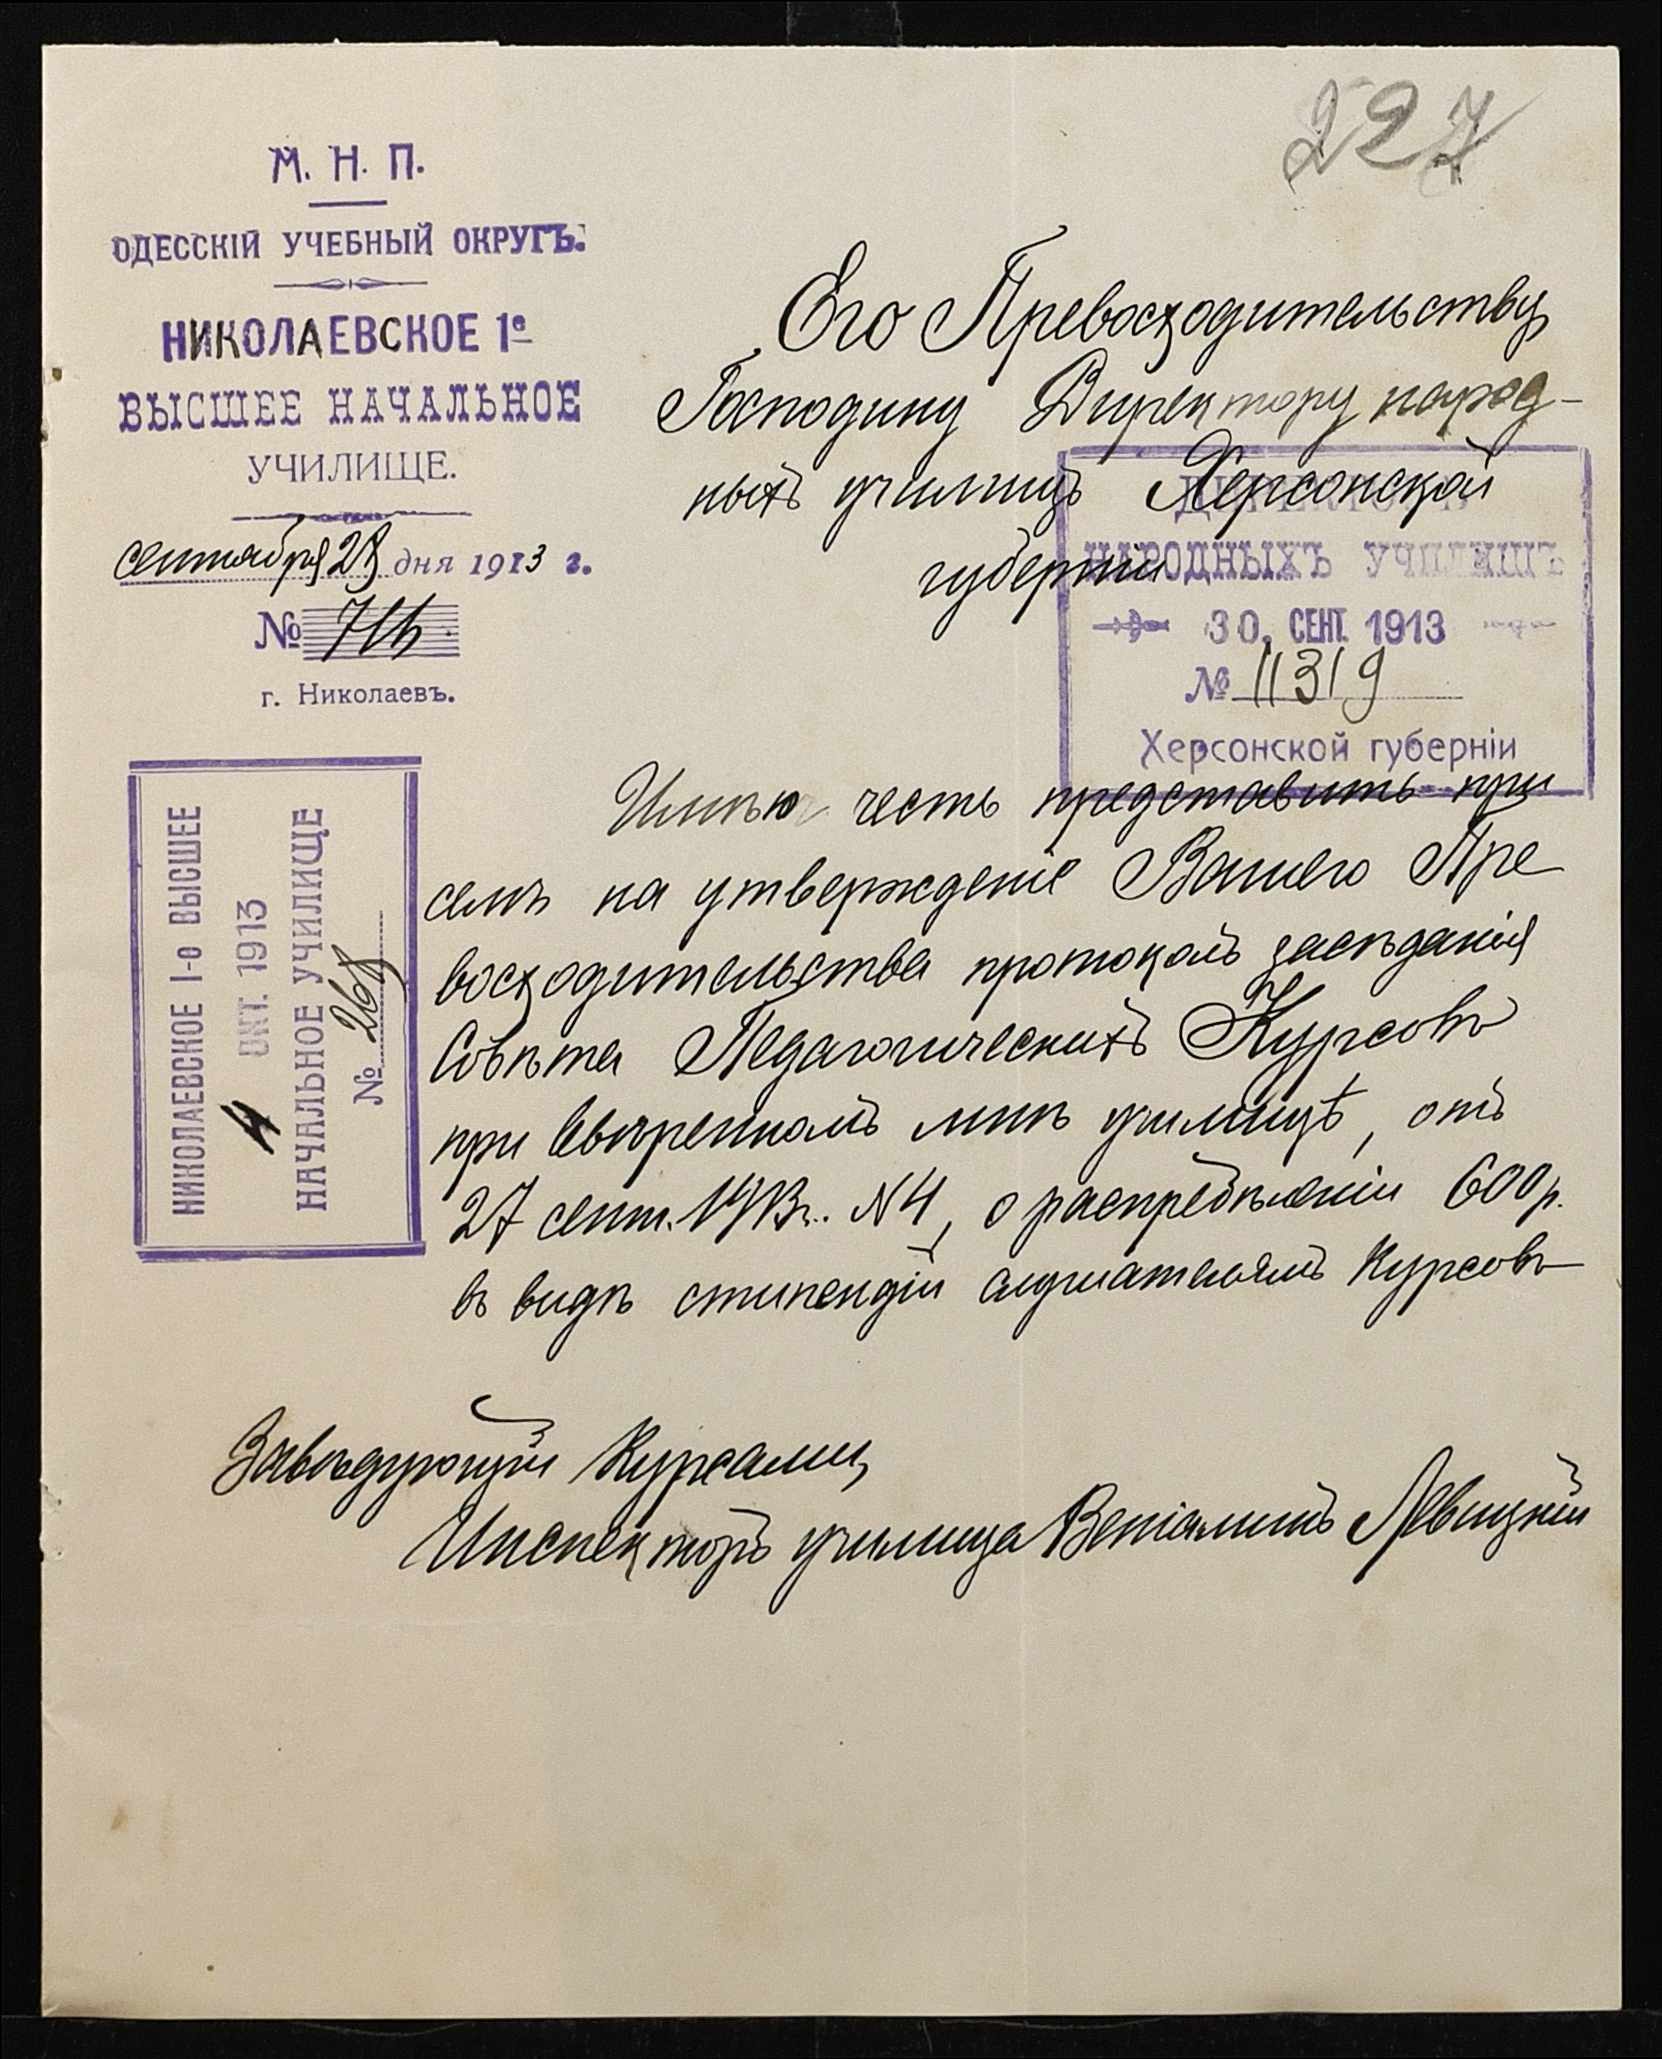 227
М. Н. П.
ОДЕССКІЙ УЧЕБНЫЙ ОКРУГЪ.
НИКОЛАЕВСКОЕ 1е
ВЫСШЕЕ НАЧАЛЬНОЕ
УЧИЛИЩЕ.
сентября 28 дня 1913 г.
№
г. Николаевъ.
Его Превосходительству
Господину Директору народ-
ныхъ училищъ Херсонской
губерніи
НАРОДНЫХЪ УЧИЛИЩЪ
30. СЕНТ. 1913
№ 11319
Херсонской губерніи
НИКОЛАЕВСКОЕ 1-о ВЫСШЕЕ
4 ОКТ. 1913
НАЧАЛЬНОЕ УЧИЛИЩЕ
№ 268
Имѣю честь представить при
семъ на утвержденіе Вашего Пре
восходительства протоколъ засѣданія
Совѣта Педагогическихъ Курсовъ
при ввѣренномъ мнѣ училищѣ, отъ
27 сент. 1913 г. N 4, о распредѣленіи 600 р.
въ видѣ стипендій слушателямъ Курсовъ
Завѣдующій Курсами,
Инспекторъ училища Веніаминъ Левицкій